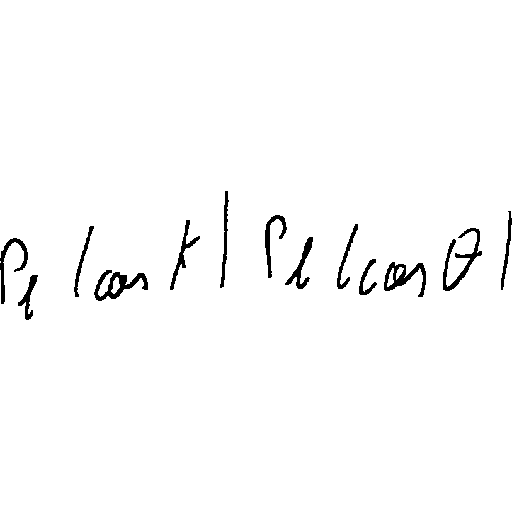 P_l(cos k) P_l(cos θ)